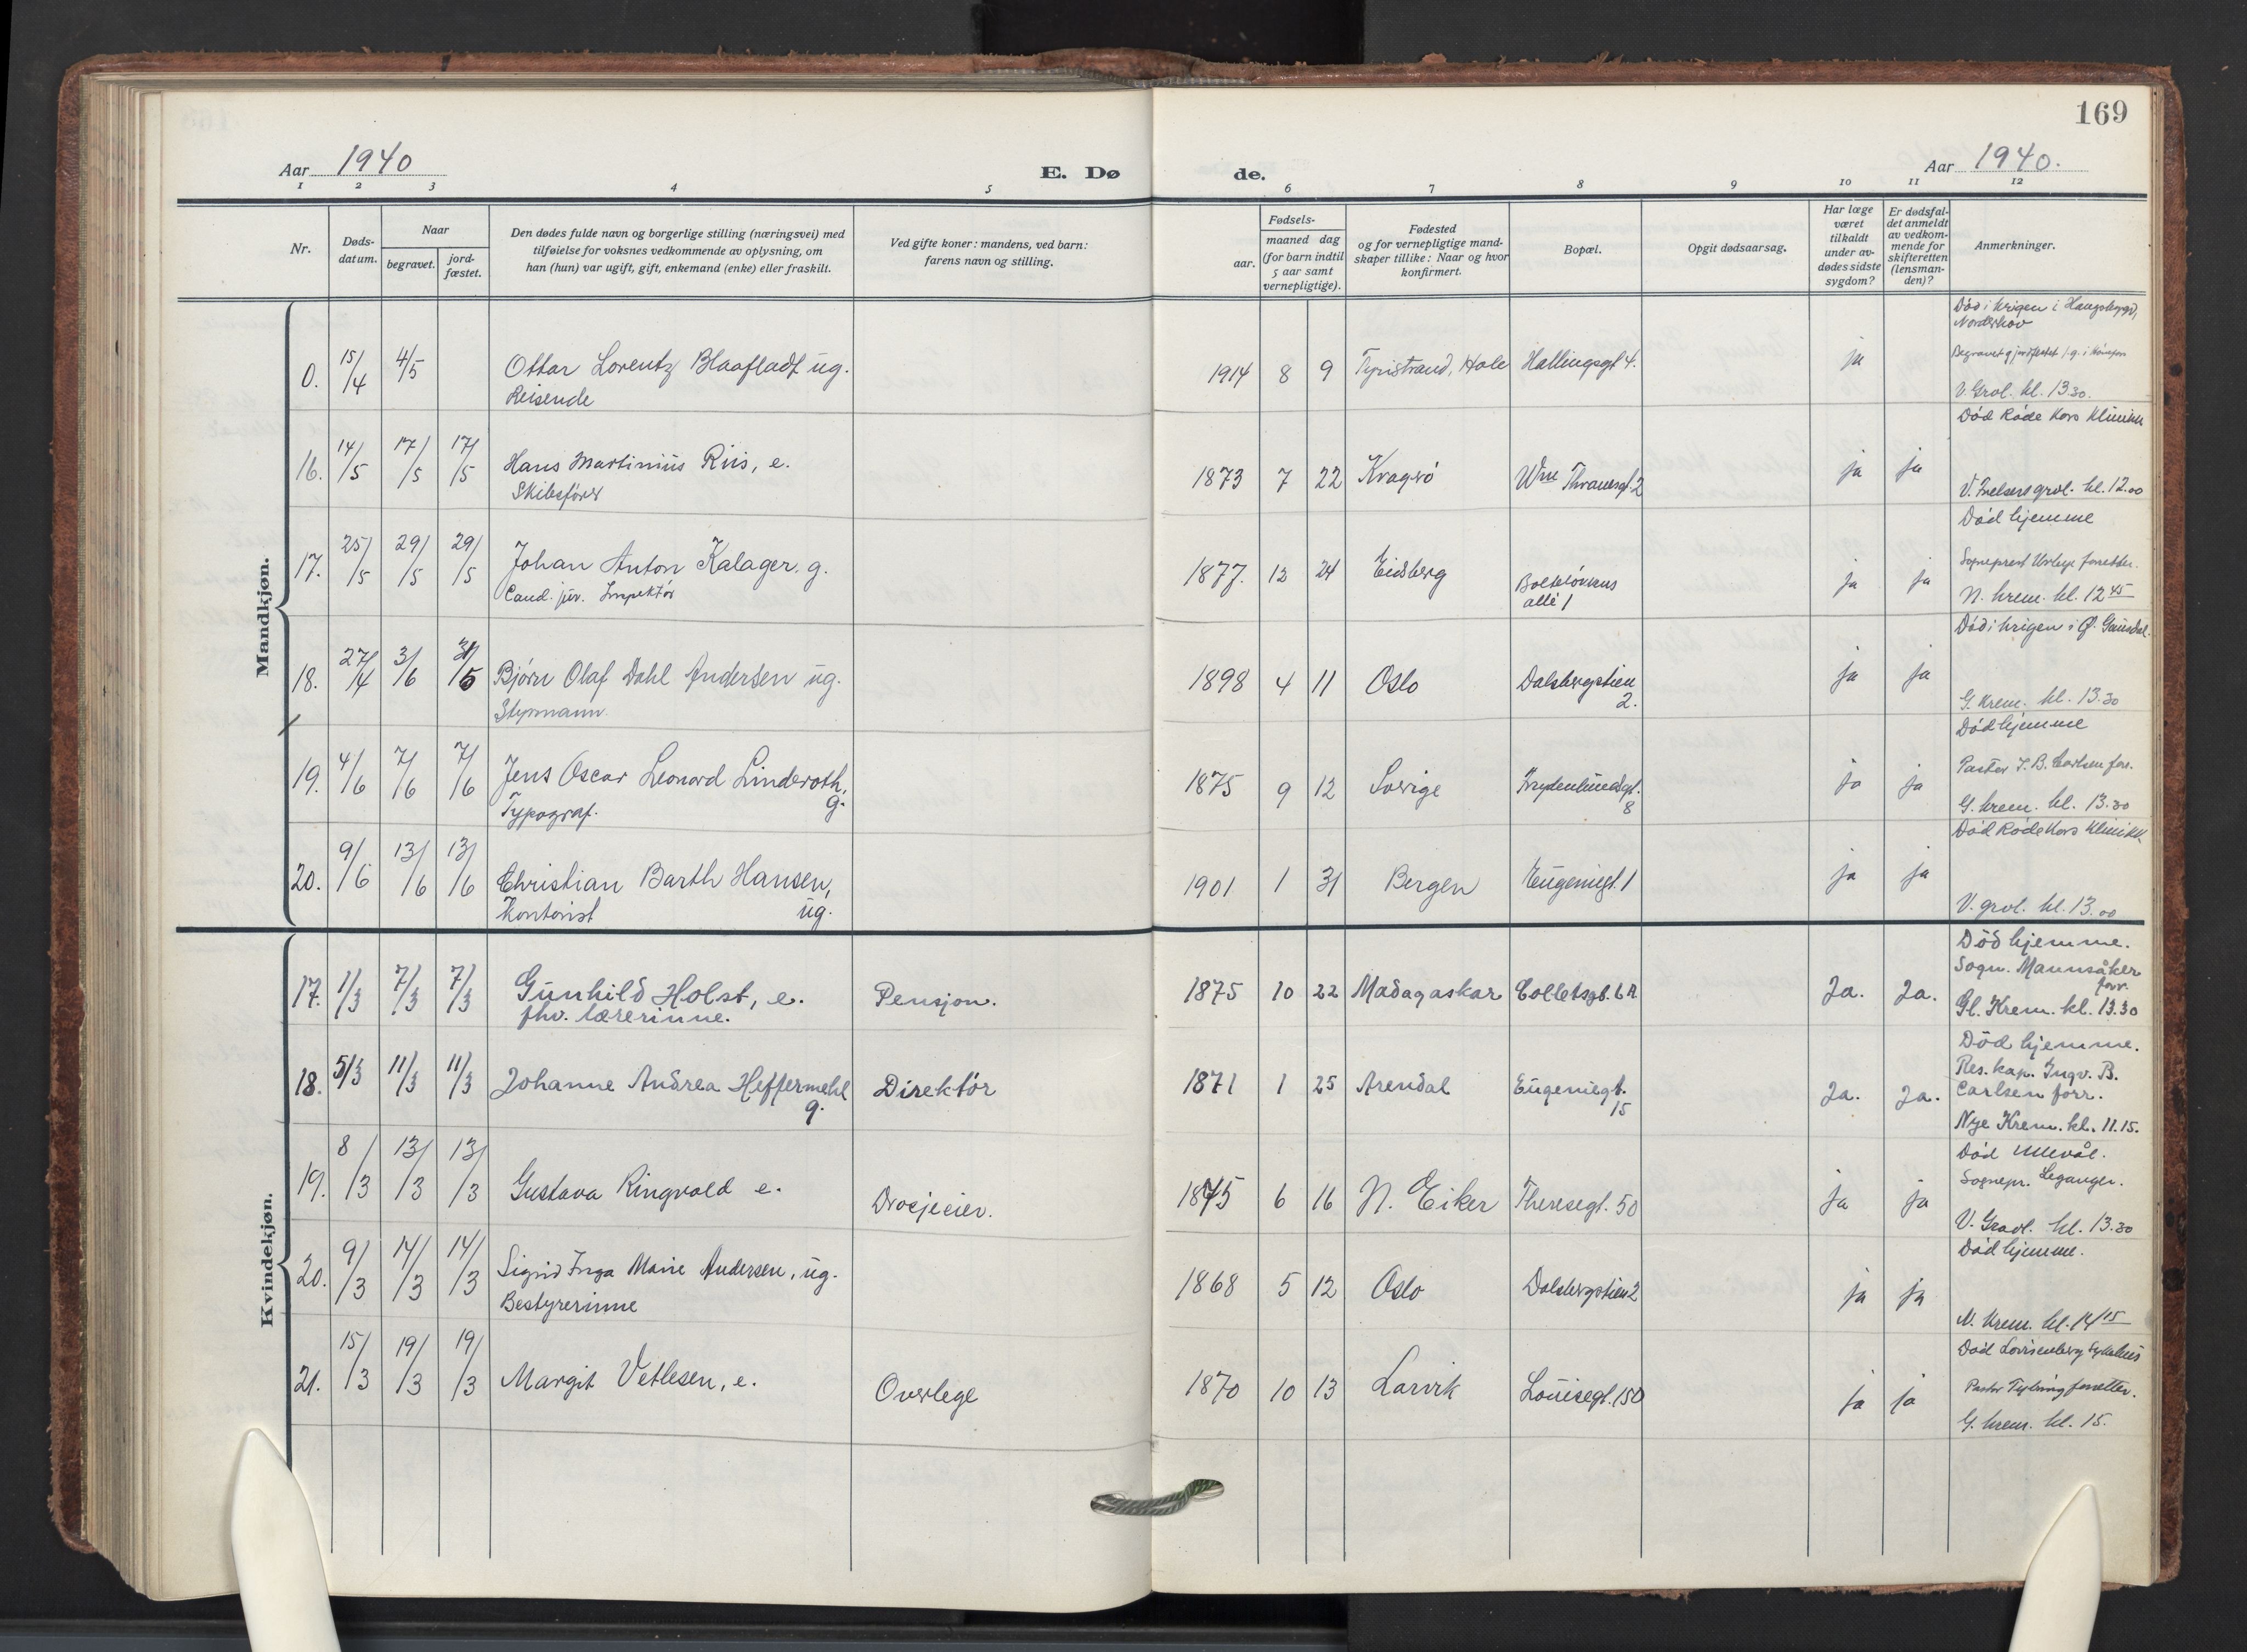 169
Aar 1940
E. Dø
de.
Aar 1940.
1 2 3 4 5 6 7 8 9 10 11 12
Nr.
Døds-
datum.
Naar
begravet.
jord-
fæstet.
Den dødes fulde navn og borgerlige stilling (næringsvei) med
tilføielse for voksnes vedkommende av oplysning, om
han (hun) var ugift, gift, enkemand (enke) eller fraskilt.
Ved gifte koner: mandens, ved barn:
farens navn og stilling.
Fødsels-
aar.
maaned dag
(for barn indtil
5 aar samt
vernepligtige).
Fødested
og for vernepligtige mand-
skaper tillike: Naar og hvor
konfirmert.
Bopæl.
Opgit dødsaarsag.
Har læge
været
tilkaldt
under av-
dødes sidste
sygdom?
Er dødsfal-
det anmeldt
av vedkom-
mende for
skifteretten
(lensman-
den)?
Anmerkninger.
Mandkjøn.
0. 15/4 4/5 Ottar Lorentz Blaafladt ug.
Reisende
1914 8 9 Tyristrand, Hole Hallingsgt 4. ja
Død i krigen i Haugsbygd,
Norderhov
Begravet og jordfestet
V. Grol. kl. 13.30.
16. 14/5 17/5 17/5 Hans Martinius Riis, e.
Skibsfører
1873 7 22 Kragerø Wm Thranesgt. 2 ja ja
Død Røde Kors Klinikk
V. Frelsers grvl. kl. 12.00
17. 25/5 29/5 29/5 Johan Anton Kalager. g.
Cand. jur. Inspektør
1877. 12 24 Eidsberg Bolteløkkens
allé 1
ja ja
Død hjemme
Sogneprest forretter.
N. krem. kl. 12 45
18. 27/4 3/6 31/5 Bjørn Olaf Dahl Andersen ug.
Styrmann.
1898 4 11 Oslo Dalsbergstien
2.
ja ja
Død i krigen i Ø. Gausdal.
G. Krem. kl. 13.30
19. 4/6 7/6 7/6 Jens Oscar Leonard Linderoth,
Typograf. g.
1875 9 12 Sverige Frydenlundsgt.
8
ja ja
Død hjemme
Pastor I. B. Carlsen forr.
G. krem. kl. 13.30
20. 9/6 13/6 13/6 Christian Barth Hansen,
Kontorist ug.
1901 1 31 Bergen Eugeniegt. 1 ja ja
Død Røde Kors Klinikk
V. grvl. kl. 13.00
Kvindekjøn.
17. 1/3 7/3 7/3 Gunhild Holst, e.
fhv. lærerinne.
Pensjon.
1875 10 22 Madagaskar Colletsgt. 6A Ja. Ja.
Død hjemme.
Sogn. Mannsåker
forr.
Gl. Krem. kl. 13.30
18. 5/3 11/3 11/3 Johanne Andrea Heffermehl
g.
Direktør
1871 1 25 Arendal Eugeniegt.
15
Ja. Ja.
Død hjemme.
Res. kap. Ingv. B.
Carlsen forr.
Nye Krem. kl. 11.15.
19. 8/3 13/3 13/3 Gustava Ringvold e.
Drosjeeier.
1875 6 16 N. Eiker Theresegt. 50 ja ja
Død Ullevål.
Sognepr. Leganger.
V. Gravl. kl. 13.30
20. 9/3 14/3 14/3 Sigrid Inga Marie Andersen, ug.
Bestyrerinne
1868 5 12 Oslo Dalsbergstien 2 ja ja
Død hjemme.
N. Krem. kl. 14 15
21. 15/3 19/3 19/3 Margit Vetlesen, e.
Overlege
1870 10 13 Larvik Louisegt. 15 ja ja
Død Lovisenberg Sykehus
Pastor forretter.
G. krem. kl. 15.